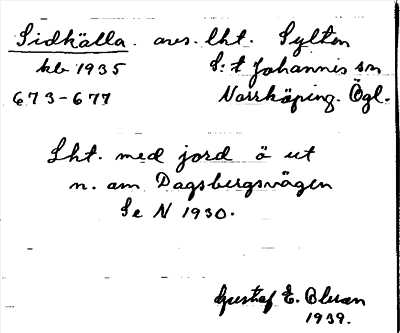 Sidkälla. avs. lht. Sylten
kb 1935 S:t Johannis sn
673-677 Norrköping. Ögl.
Lht. med jord ö ut
n. om Dagsbergsvägen
Se N 1930.
Gustaf E.
1939.